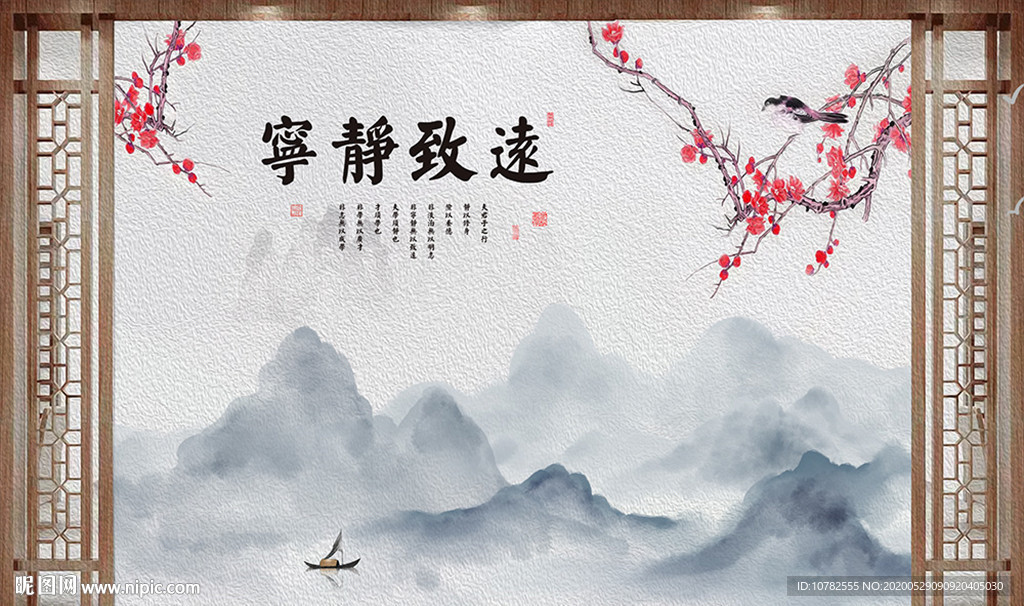 寧靜致遠
夫君子之行
靜以修身
儉以養德
非淡泊無以明志
非寧靜無以致遠
夫學須靜也
才須學也
非學無以廣才
非志無以成學
昵图网 www.nipic.com
ID:10782555 NO:20200529090920405030